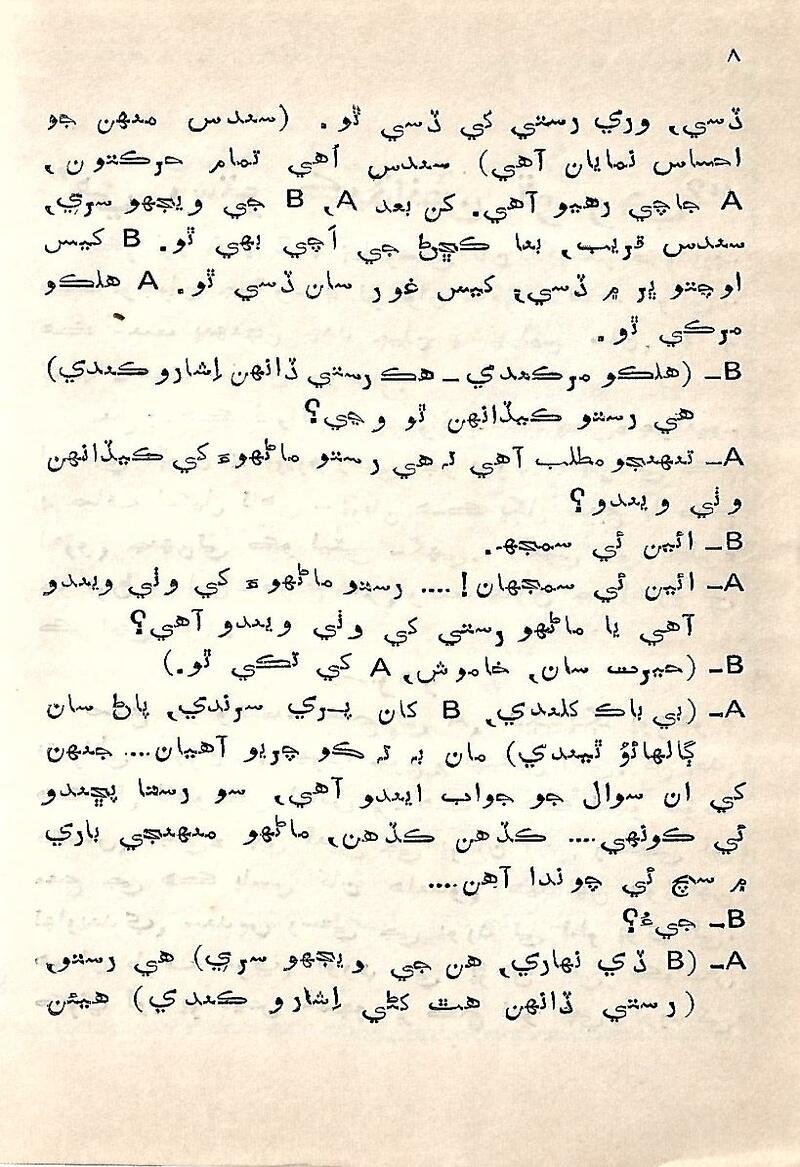 ٨
ڏسي، وري رستي کي ڏسي ٿو. (سندس منهن جو
احساس نمايان آهي) سندس اُهي تمام حرڪتون،
A جاچي رهيو آهي. کن بعد A، B جي ويجهو سري،
سندس قريب، بنا ڪڇڻ جي اَچي بهي ٿو. B کيس
اوچتو ڀر ۾ ڏسي؛ کيس غور سان ڏسي ٿو. A هلڪو
مرڪي ٿو.
B_ (هلڪو مرڪندي _ هڪ رستي ڏانهن اِشارو ڪندي)
هي رستو ڪيڏانهن ٿو وڃي؟
A_ تنهنجو مطلب آهي تہ هي رستو ماڻهوءَ کي ڪيڏانهن
وٺي ويندو؟
B_ ائين ئي سمجهہ.
A_ ائين ئي سمجهان! .... رستو ماڻهوءَ کي وٺي ويندو
آهي يا ماڻهو رستي کي وٺي ويندو آهي؟
B_ (حيرت سان، خاموش، A کي تڪي ٿو.)
A_ (بي باڪ کلندي، B کان پري سرندي، پاڻ سان
ڳالهائؤُ ٿيندي) مان بہ تہ ڪو چريو آهيان.... جنهن
کي ان سوال جو جواب ايندو آهي، سو رستا پڇندو
ئي ڪونهي.... ڪڏهن ڪڏهن، ماڻهو منهنجي باري
۾ سچ ئي چوندا آهن....
B_ جيءُ؟
A_ (B ڏي نهاري، هن جي ويجهو سري) هي رستو،
(رستي ڏانهن هٿ کڻي اِشارو ڪندي) هيئن